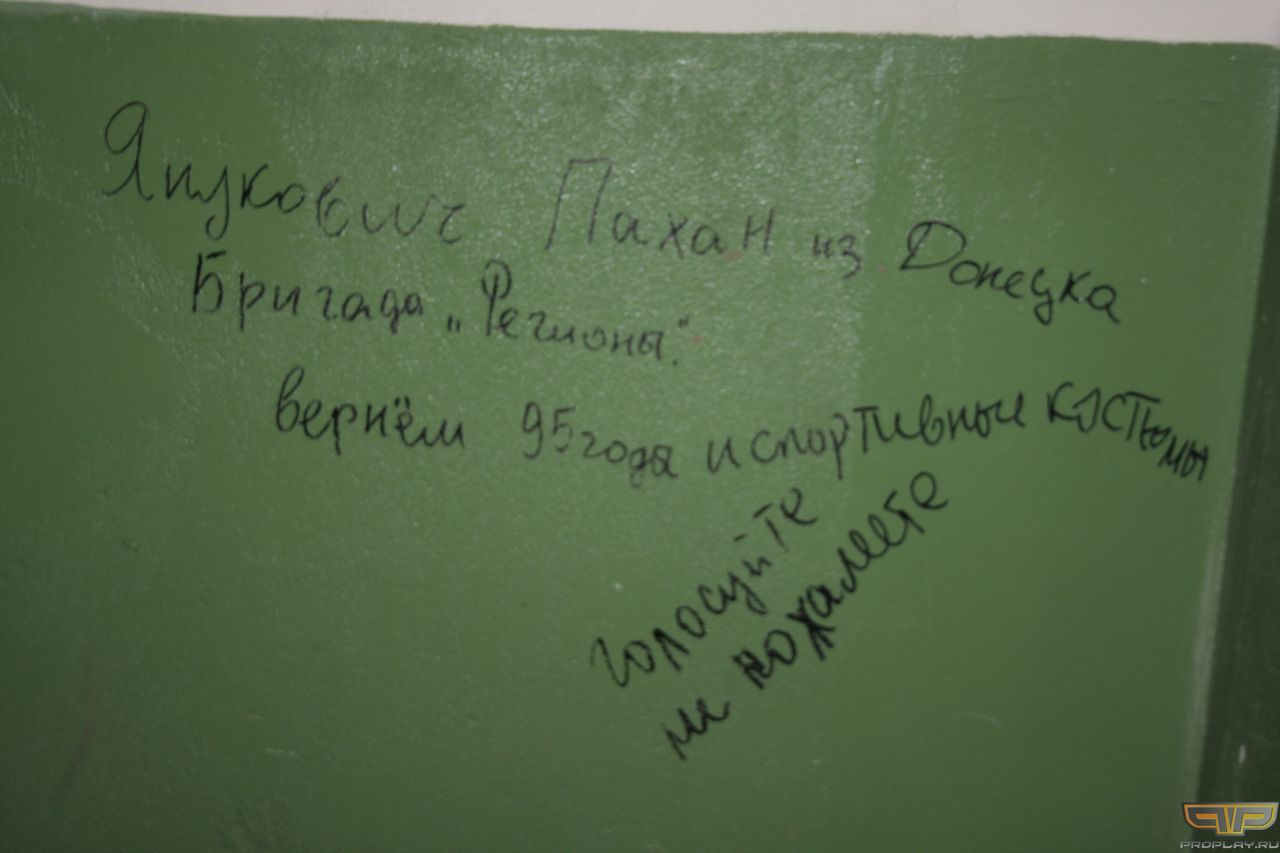 Янукович Пахан из Донецка
Бригада „Регионы".
вернём 95 года и спортивные костьюмы
голосуйте
не пожалеете
PROPLAY.RU